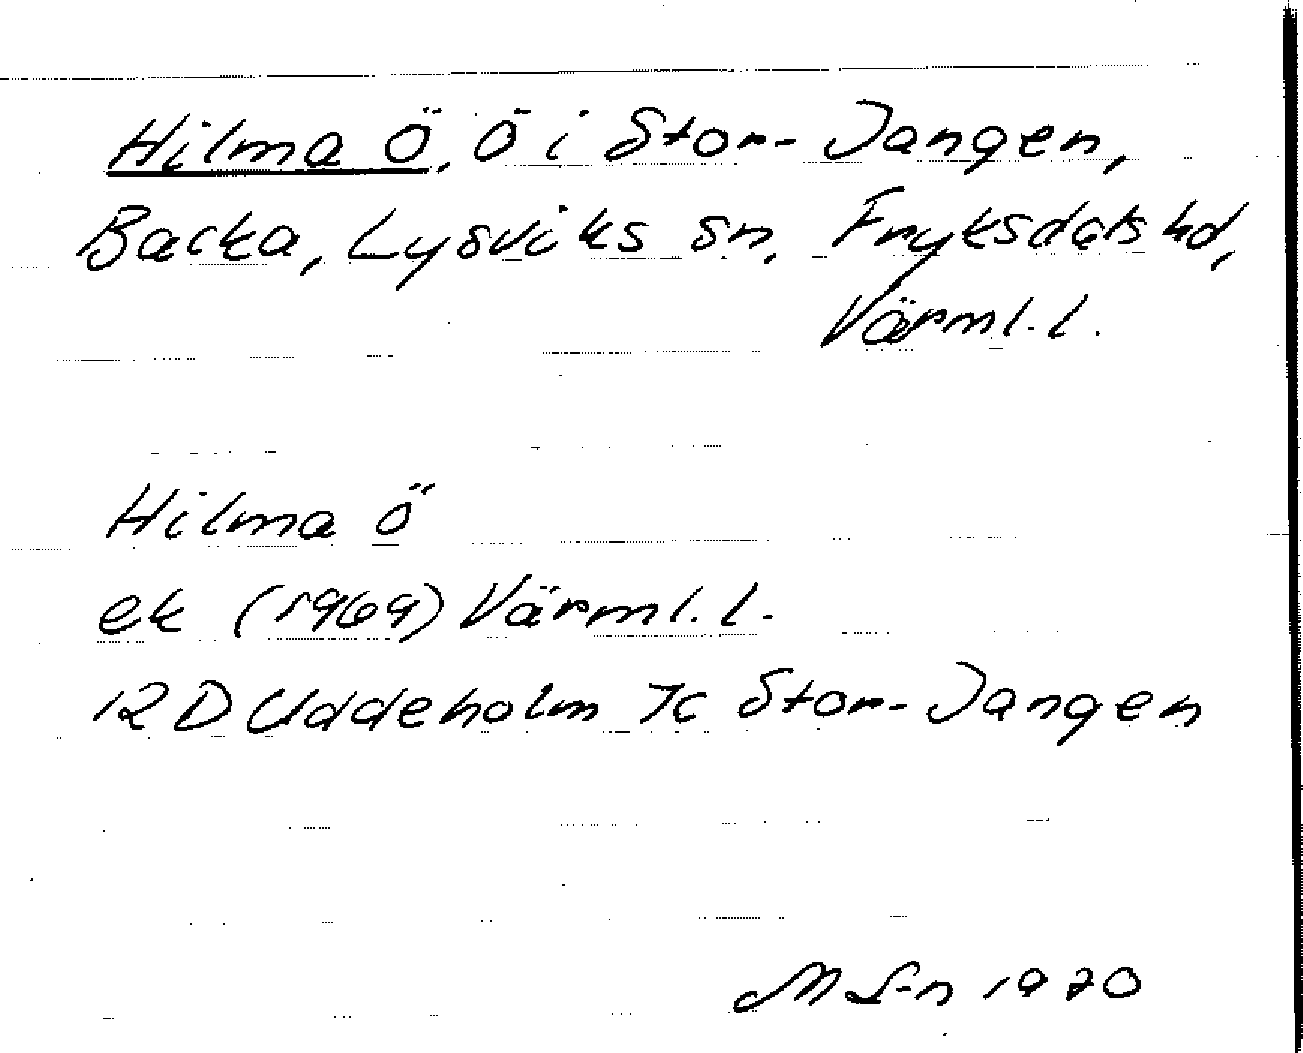 Hilma Ö, Ö i Stor-Jangen,
Backa, Lysviks sn, Fryksdals hd,
Värml. l.
Hilma Ö
ek (1969) Värml. l.
12D Uddeholm 7c Stor-Jangen
M S-n 1970